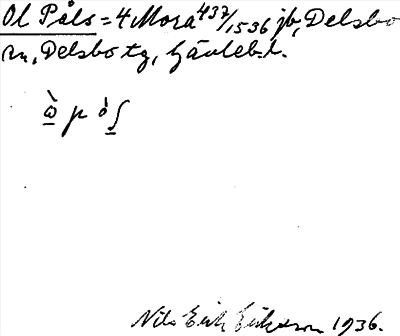 Ol Påls = 4 Mora 437/1536 jb, Delsbo
sn, Delsbo tg, Gävleb. l.
ὼ p ȯ̀ʃ
Nils Erik Eriksson 1936.